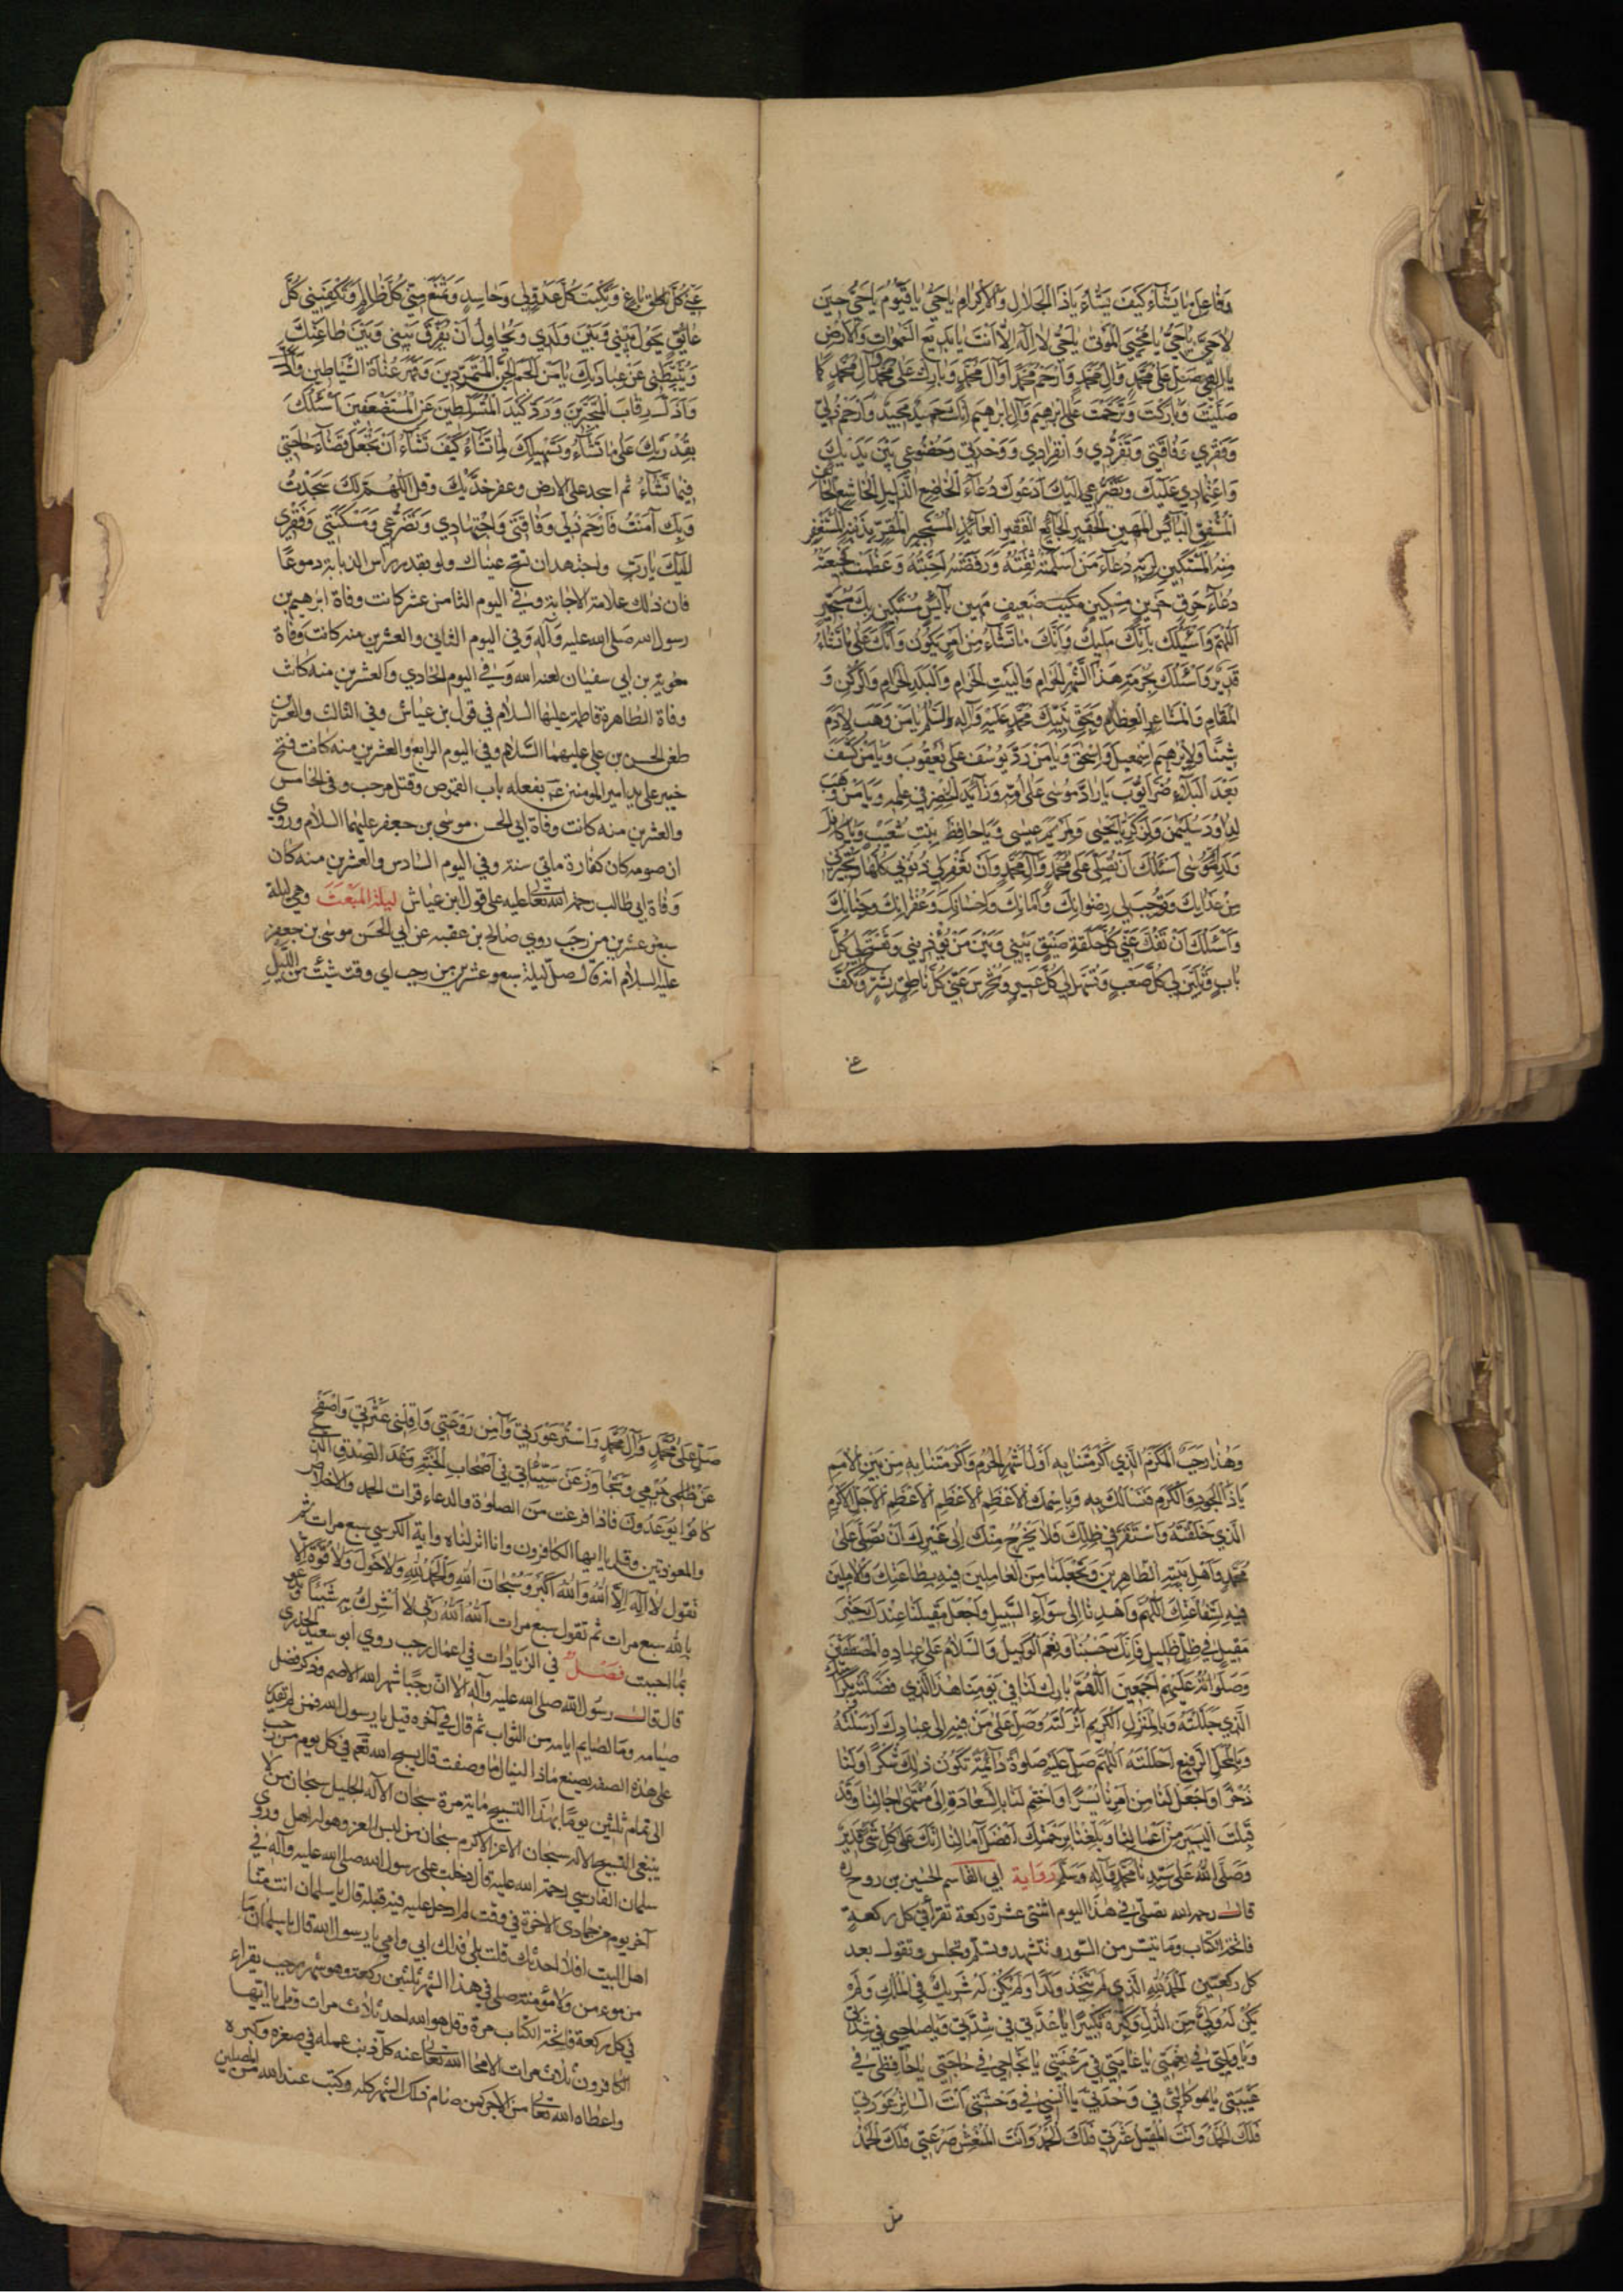 وَفَاعِلَ مَا يَشَآءُ كَيْفَ يَشَآءُ يَا ذَا الْجَلَالِ وَالْاِكْرَامِ يَا حَيُّ يَا قَيُّومُ يَا حَيُّ حِينَ
لَا حَيَّ يَا حَيُّ يَا مُحْيِيَ الْمَوْتٰى يَا حَيُّ لَا اِلٰهَ اِلَّا اَنْتَ يَا بَدِيعَ السَّمٰوَاتِ وَالْاَرْضِ
يَا اِلٰهِي صَلِّ عَلٰى مُحَمَّدٍ وَآلِ مُحَمَّدٍ وَارْحَمْ مُحَمَّدًا وَآلَ مُحَمَّدٍ وَبَارِكْ عَلٰى مُحَمَّدٍ وَآلِ مُحَمَّدٍ كَمَا
صَلَّيْتَ وَبَارَكْتَ وَتَرَحَّمْتَ عَلٰى اِبْرٰهِيمَ وَآلِ اِبْرٰهِيمَ اِنَّكَ حَمِيدٌ مَجِيدٌ وَارْحَمْ ذُلِّي
وَفَقْرِي وَفَاقَتِي وَتَفَرُّدِي وَانْفِرَادِي وَوَحْدَتِي وَخُضُوعِي بَيْنَ يَدَيْكَ
وَاعْتِمَادِي عَلَيْكَ وَتَضَرُّعِي اِلَيْكَ اَدْعُوكَ دُعَآءَ الْخَاضِعِ الذَّلِيلِ الْخَاشِعِ الْخَائِفِ
الْمُشْفِقِ الْبَآئِسِ الْمَهِينِ الْحَقِيرِ الْجَائِعِ الْفَقِيرِ الْعَآئِذِ الْمُسْتَجِيرِ الْمُقِرِّ بِذَنْبِهِ الْمُسْتَغْفِرِ
مِنْهُ الْمُسْتَكِينِ لِرَبِّهِ دُعَآءَ مَنْ اَسْلَمَتْهُ ثِقَتُهُ وَرَفَضَتْهُ اَحِبَّتُهُ وَعَظُمَتْ فَجِيعَتُهُ
دُعَآءَ حَرِقٍ حَزِينٍ مِسْكِينٍ مَكِيبٍ ضَعِيفٍ مَهِينٍ بَآئِسٍ مُسْتَكِينٍ بِكَ مُسْتَجِيرٍ
اَللّٰهُمَّ وَاَسْئَلُكَ بِاَنَّكَ مَلِيكٌ وَاَنَّكَ مَا تَشَآءُ مِنْ اَمْرٍ يَكُونُ وَاَنَّكَ عَلٰى مَا تَشَآءُ
قَدِيرٌ وَاَسْئَلُكَ بِحُرْمَةِ هٰذَا الشَّهْرِ الْحَرَامِ وَالْبَيْتِ الْحَرَامِ وَالْبَلَدِ الْحَرَامِ وَالرُّكْنِ وَ
الْمَقَامِ وَالْمَشَاعِرِ الْعِظَامِ وَبِحَقِّ نَبِيِّكَ مُحَمَّدٍ عَلَيْهِ وَآلِهِ السَّلَامُ يَا مَنْ وَهَبَ لِاٰدَمَ
شِيثًا وَلِاِبْرٰهِيمَ اِسْمٰعِيلَ وَاِسْحٰقَ وَيَا مَنْ رَدَّ يُوسُفَ عَلٰى يَعْقُوبَ وَيَا مَنْ كَشَفَ
بَعْدَ الْبَلَآءِ ضُرَّ اَيُّوبَ يَا رَادَّ مُوسٰى عَلٰى اُمِّهِ وَزَآئِدَ الْخِضْرِ فِي عِلْمِهِ وَيَا مَنْ وَهَبَ
لِدَاوُدَ سُلَيْمٰنَ وَلِزَكَرِيَّا يَحْيٰى وَلِمَرْيَمَ عِيسٰى وَيَا حَافِظَ بِنْتِ شُعَيْبٍ وَيَا كَافِلَ
وَلَدِ اُمِّ مُوسٰى اَسْئَلُكَ اَنْ تُصَلِّيَ عَلٰى مُحَمَّدٍ وَآلِ مُحَمَّدٍ وَاَنْ تَغْفِرَ لِي ذُنُوبِي كُلَّهَا وَتُجِيرَنِي
مِنْ عَذَابِكَ وَتُوجِبَ لِي رِضْوَانَكَ وَاَمَانَكَ وَاِحْسَانَكَ وَغُفْرَانَكَ وَجِنَانَكَ
وَاَسْئَلُكَ اَنْ تَفُكَّ عَنِّي كُلَّ حَلْقَةِ ضِيقٍ بَيْنِي وَبَيْنَ مَنْ يُؤْذِينِي وَتَفْتَحَ لِي كُلَّ
بَابٍ وَتُلَيِّنَ لِي كُلَّ صَعْبٍ وَتُسَهِّلَ لِي كُلَّ عَسِيرٍ وَتُخْرِسَ عَنِّي كُلَّ نَاطِقٍ بِشَرٍّ وَتَكُفَّ
عنى
عَنِّي كُلَّ بَاغٍ وَتَكْبِتَ كُلَّ عَدُوٍّ لِي وَحَاسِدٍ وَتَمْنَعَ مِنِّي كُلَّ ظَالِمٍ وَتَكْفِيَنِي كُلَّ
عَائِقٍ يَحُولُ بَيْنِي وَبَيْنَ وَلَدِي وَيُحَاوِلُ اَنْ يُفَرِّقَ بَيْنِي وَبَيْنَ طَاعَتِكَ
وَيُثَبِّطَنِي عَنْ عِبَادَتِكَ يَا مَنْ اَلْجَمَ الْجِنَّ الْمُتَمَرِّدِينَ وَقَهَرَ عُتَاةَ الشَّيَاطِينِ
وَاَذَلَّ رِقَابَ الْمُتَجَبِّرِينَ وَرَدَّ كَيْدَ الْمُتَسَلِّطِينَ عَنِ الْمُسْتَضْعَفِينَ اَسْئَلُكَ
بِقُدْرَتِكَ عَلٰى مَا تَشَآءُ وَتَسْهِيلِكَ لِمَا تَشَآءُ كَيْفَ تَشَآءُ اَنْ تَجْعَلَ قَضَآءَ حَاجَتِي
فِيمَا تَشَآءُ ثم اسجد على الارض وعفر خدّيك وقل اَللّٰهُمَّ لَكَ سَجَدْتُ
وَبِكَ آمَنْتُ فَارْحَمْ ذُلِّي وَفَاقَتِي وَاجْتِهَادِي وَتَضَرُّعِي وَمَسْكَنَتِي وَفَقْرِي
اِلَيْكَ يَا رَبِّ واجتهد ان تسح عيناك ولو بقدر راس الذبابة دموعًا
فان ذلك علامة الاجابة وفي اليوم الثامن عشر كانت وفاة ابرهيم بن
رسول الله صلى الله عليه وآله وفي اليوم الثاني والعشرين منه كانت وفاة
معوية بن ابي سفيان لعنه الله وفي اليوم الحادي والعشرين منه كانت
وفاة الطاهرة فاطمة عليها السلام في قول بن عياش وفي الثالث والعشرين
طعن الحسن بن علي عليهما السلام وفي اليوم الرابع والعشرين منه كانت فتح
خيبر على يد امير المومنين ع بفعله باب القموص وقتل مرحب وفي الخامس
والعشرين منه كانت وفاة ابي الحسن موسى بن جعفر عليهما السلام وروي
ان صومه كان كفارة مأتي سنة وفي اليوم السادس والعشرين منه كان
وفاة ابي طالب رحمة الله تعالى عليه على قول ابن عياش ليلة المبعث وهي ليلة
سبع وعشرين من رجب روي صالح بن عقبه عن ابي الحسن موسى بن جعفر
عليه السلام انه قال صلّ ليلة سبع وعشرين من رجب اي وقت شئت من الليل
وَهٰذَا رَجَبٌ الْمُكَرَّمُ الَّذِي اَكْرَمْتَنَا بِهِ اَوَّلُ اَشْهُرِ الْحُرُمِ وَاَكْرَمْتَنَا بِهِ مِنْ بَيْنِ الْاُمَمِ
يَا ذَا الْجُودِ وَالْكَرَمِ فَنَسْأَلُكَ بِهِ وَبِاسْمِكَ الْاَعْظَمِ الْاَعْظَمِ الْاَعْظَمِ الْاَجَلِّ الْاَكْرَمِ
الَّذِي خَلَقْتَهُ وَاسْتَقَرَّ فِي ظِلِّكَ فَلَا يَخْرُجُ مِنْكَ اِلٰى غَيْرِكَ اَنْ تُصَلِّيَ عَلٰى
مُحَمَّدٍ وَاَهْلِ بَيْتِهِ الطَّاهِرِينَ وَتَجْعَلَنَا مِنَ الْعَامِلِينَ فِيهِ بِطَاعَتِكَ وَالْاٰمِلِينَ
فِيهِ لِشَفَاعَتِكَ اَللّٰهُمَّ وَاهْدِنَا اِلٰى سَوَآءِ السَّبِيلِ وَاجْعَلْ مَقِيلَنَا عِنْدَكَ خَيْرَ
مَقِيلٍ فِي ظِلٍّ ظَلِيلٍ فَاِنَّكَ حَسْبُنَا وَنِعْمَ الْوَكِيلُ وَالسَّلَامُ عَلٰى عِبَادِهِ الْمُصْطَفَيْنَ
وَصَلَوَاتُهُ عَلَيْهِمْ اَجْمَعِينَ اَللّٰهُمَّ بَارِكْ لَنَا فِي يَوْمِنَا هٰذَا الَّذِي فَضَّلْتَهُ وَبِكَرَامَتِكَ
الَّذِي جَلَّلْتَهُ وَبِالْمَنْزِلِ الْكَرِيمِ اَنْزَلْتَهُ وَصَلِّ عَلٰى مَنْ فِيهِ اِلٰى عِبَادِكَ اَرْسَلْتَهُ
وَبِالْمَحَلِّ الرَّفِيعِ اَحْلَلْتَهُ اَللّٰهُمَّ صَلِّ عَلَيْهِ صَلٰوةً دَآئِمَةً تَكُونُ ذٰلِكَ شُكْرًا وَلَنَا
ذُخْرًا وَاجْعَلْ لَنَا مِنْ اَمْرِنَا يُسْرًا وَاخْتِمْ لَنَا بِالسَّعَادَةِ اِلٰى مُنْتَهٰى اٰجَالِنَا وَقَدْ
قَبِلْتَ الْيَسِيرَ مِنْ اَعْمَالِنَا وَبَلِّغْنَا بِرَحْمَتِكَ اَفْضَلَ آمَالِنَا اِنَّكَ عَلٰى كُلِّ شَيْءٍ قَدِيرٌ
وَصَلَّى اللّٰهُ عَلٰى سَيِّدِنَا مُحَمَّدٍ وَآلِهِ وَسَلَّمَ رواية ابي القاسم الحسين بن روح ره
قال رحمه الله تصلّي في هذا اليوم اثنتي عشرة ركعة تقرأ في كل ركعة
فاتحة الكتاب وما تيسّر من السّور وتتشهد وتسلّم وتجلس وتقول بعد
كل ركعتين اَلْحَمْدُ لِلّٰهِ الَّذِي لَمْ يَتَّخِذْ وَلَدًا وَلَمْ يَكُنْ لَهُ شَرِيكٌ فِي الْمُلْكِ وَلَمْ
يَكُنْ لَهُ وَلِيٌّ مِنَ الذُّلِّ وَكَبِّرْهُ تَكْبِيرًا يَا عُدَّتِي فِي شِدَّتِي وَيَا صَاحِبِي فِي شِدَّتِي
وَيَا وَلِيِّي فِي نِعْمَتِي يَا غَايَتِي فِي رَغْبَتِي يَا نَجَاحِي فِي حَاجَتِي يَا حَافِظِي فِي
غَيْبَتِي يَا كَالِئِي فِي وَحْدَتِي يَا اُنْسِي فِي وَحْشَتِي اَنْتَ السَّاتِرُ عَوْرَتِي
فَلَكَ الْحَمْدُ وَاَنْتَ الْمُقِيلُ عَثْرَتِي فَلَكَ الْحَمْدُ وَاَنْتَ الْمُنْعِشُ صَرْعَتِي فَلَكَ الْحَمْدُ
صل
صَلِّ عَلٰى مُحَمَّدٍ وَآلِ مُحَمَّدٍ وَاسْتُرْ عَوْرَتِي وَآمِنْ رَوْعَتِي وَاَقِلْنِي عَثْرَتِي وَاصْفَحْ
عَنْ جُرْمِي وَتَجَاوَزْ عَنْ سَيِّئَاتِي فِي اَصْحَابِ الْجَنَّةِ وَعْدَ الصِّدْقِ الَّذِي
كَانُوا يُوعَدُونَ فاذا فرغت من الصلوة والدعاء قرات الحمد والاخلاص
والمعوذتين وقل يا ايها الكافرون وانا انزلناه واية الكرسي سبع مرات ثم
تقول لَا اِلٰهَ اِلَّا اللّٰهُ وَاللّٰهُ اَكْبَرُ وَسُبْحَانَ اللّٰهِ وَالْحَمْدُ لِلّٰهِ وَلَا حَوْلَ وَلَا قُوَّةَ اِلَّا
بِاللّٰهِ سبع مرات ثم تقول سبع مرات اَللّٰهُ اَللّٰهُ رَبِّي لَا اُشْرِكُ بِهِ شَيْئًا وتدعو
بما احببت فصل في الزيادات في اعمال رجب روي ابو سعيد الخدري
قال قال رسول الله صلى الله عليه وآله الا ان رجبًا شهر الله الاصم وذكر فضل
صيامه وما لصايم ايامه من الثواب ثم قال في آخره قيل يا رسول الله فمن لم يقدر
على هذه الصفة يصنع ماذا لينال ما وصفت قال يسبح الله تعم في كل يوم من رجب
الى تمام ثلثين يومًا بهذا التسبيح ماية مرة سبحان الاله الجليل سبحان من لا
ينبغي التسبيح الا له سبحان الاعز الاكرم سبحان من لبس العز وهو له اهل وروي
سلمان الفارسي رحمة الله عليه قال دخلت على رسول الله صلى الله عليه وآله في
آخر يوم من جمادى الاخرة في وقت لم ادخل عليه فيه قبله قال يا سلمان انت منا
اهل البيت افلا احدثك قلت بلى فداك ابي وامي يا رسول الله قال يا سلمان ما
من مومن ولا مؤمنة صلى في هذا الشهر ثلثين ركعة وهو شهر رجب يقراء
في كل ركعة فاتحة الكتاب مرة وقل هو الله احد ثلاث مرات وقل يا ايها
الكافرون ثلاث مرات الا محا الله تعالى عنه كل ذنب عمله في صغره وكبره
واعطاه الله تعالى من الاجر كمن صام ذلك الشهر كله وكتب عند الله من المصلين